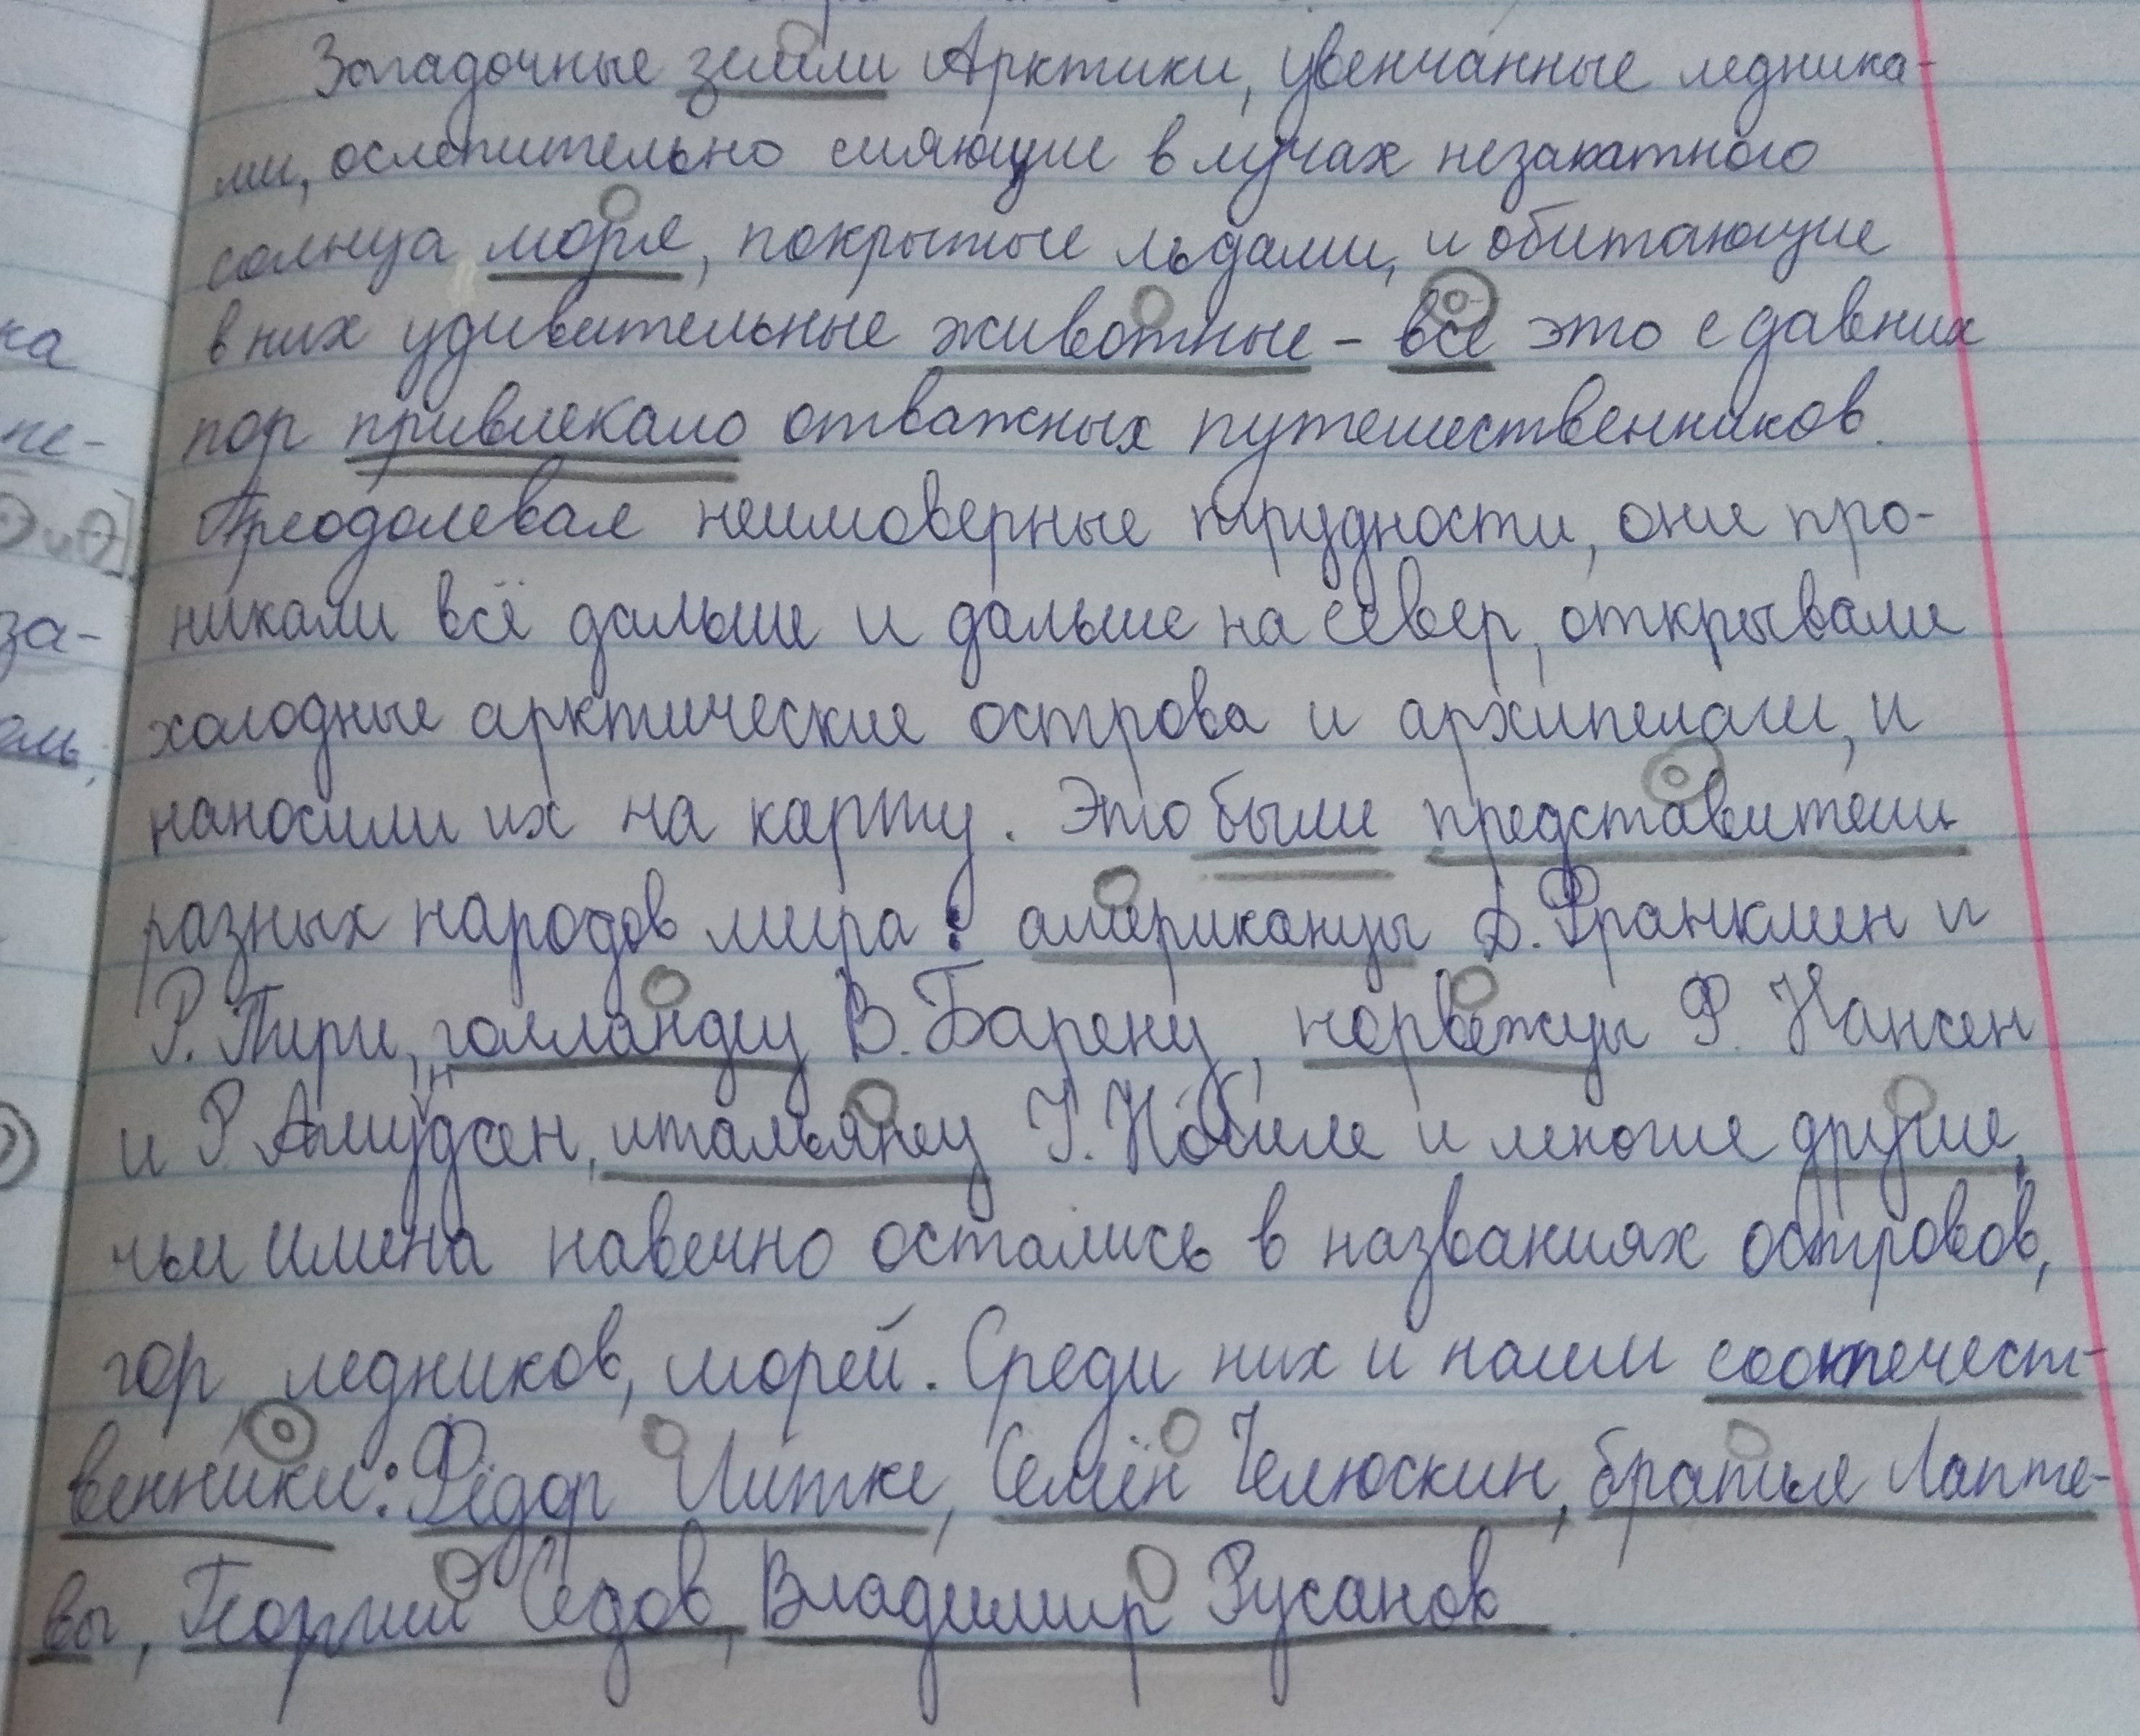 Загадочные земли Арктики, увенчанные ледника-
ми, ослепительно сияющие в лучах незакатного
солнца моря, покрытые льдами, и обитающие
в них удивительные животные – всё это с давних
пор привлекало отважных путешественников.
Преодолевая неимоверные трудности, они про-
никали всё дальше и дальше на север, открывали
холодные арктические острова и архипелаги, и
наносили их на карту. Это были представители
разных народов мира: американцы Д. Франклин и
Р. Пири, голландец В. Баренц, норвежцы Ф. Нансен
и Р. Амундсен, итальянец У. Нобиле и многие другие,
чьи имена навечно остались в названиях островов,
гор, ледников, морей. Среди них и наши соотечест-
венники: Фёдор Литке, Семён Челюскин, братья Лапте-
вы, Георгий Седов, Владимир Русанов.
ка
пе-
за-
ель,